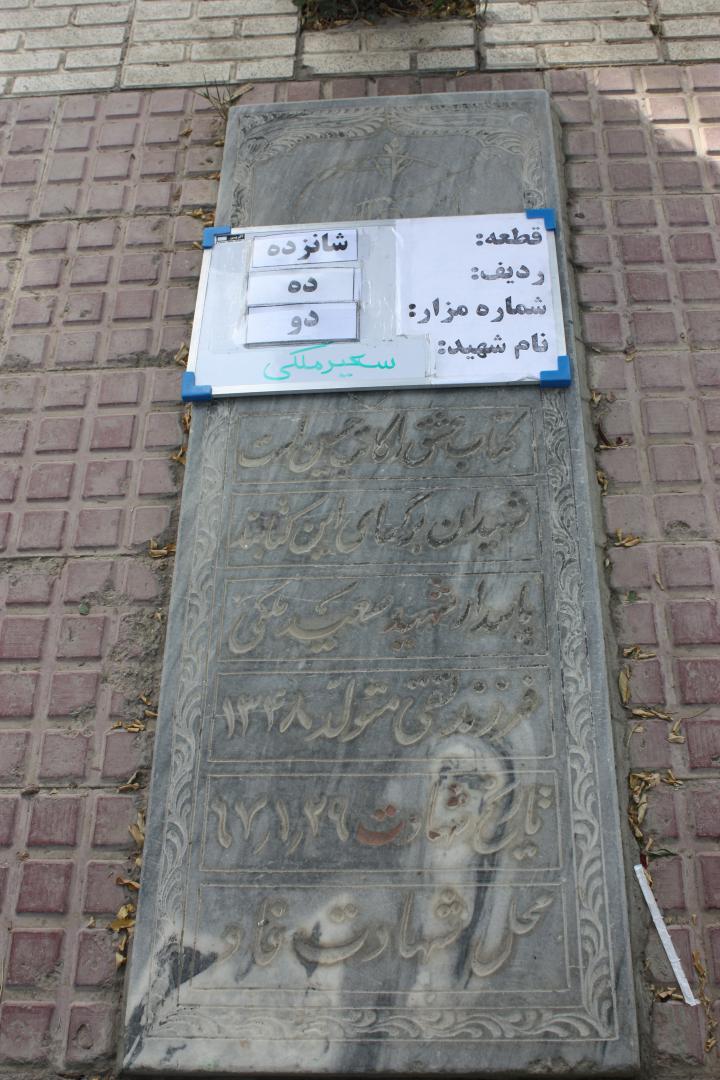 قطعه: شانزده
ردیف: ده
شماره مزار: دو
نام شهید: سعید ملکی
کتاب عشق را کاتب حسین است
شهیدان برگهای این کتابند
پاسدار شهید سعید ملکی
فرزند تقی متولد ۱۳۴۸
تاریخ شهادت ۶۷٫۱٫۲۹
محل شهادت فاو